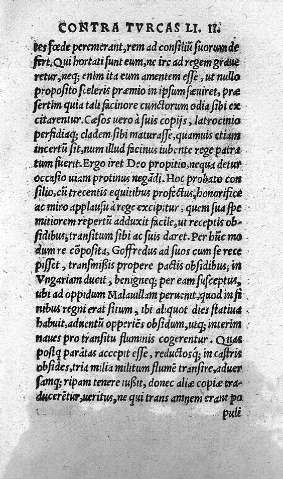 CONTRA TVRCAS LI. II.
tes fœde peremerant, rem ad consiliũ suorum de
fert. Qui hortati sunt eum, ne irc ad regem graduē
retur, neq; enim ita eum amentem esse, ut nullo
proposito sceleris præmio in ipsum sæuiret, præ
sertim quia tali facinore cunctorum odia sibi ex
citarentur. Cæsos uero à suis copijs, latrocinio
perfidiaq; cladem sibi maturasse, quamuis etiam
incertũ sit, num illud facinus iubente rege patra
tum fuerit. Ergo iret Deo propitio, neq́ua detur
occasio uiam protinus negãdi. Hoc probato con
silio, cũ trecentis equitibus profectus, honorifice
ac miro applausu à rege excipitur, quem sua spe
mitiorem repertũ adduxit facile, ut receptis ob-
sidibus, transitum sibi ac suis daret. Per hũc mo
dum re cõposita, Goffredus ad suos cum se rece
pisset, transmissis propere pactis obsidibus, in
Vngariam ducit, benigneq; per eam susceptus,
ubi ad oppidum Malauillam peruenit, quod in fi
nibus regni erat situm, ibi aliquot dies statiua
habuit, aduentũ opperiēs obsidum, utq; interim
naues pro transitu fluminis cogerentur. Quas
postq̃ paratas accepit esse, reductosq; in castris
obsides, tria milia militum flumē transire, aduer
samq; ripam tenere iussit, donec aliæ copiæ tra-
ducerētur, ueritus, ne qui trans amnem erant po
pulē